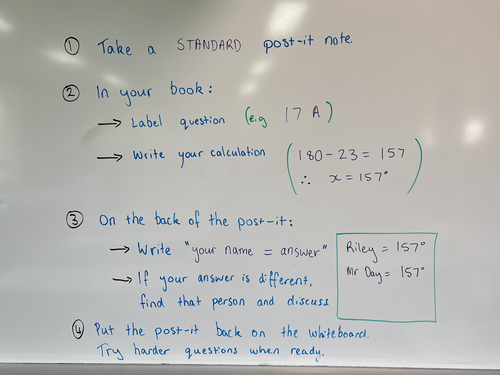 ① Take a STANDARD post-it note.
② In your book:
→ Label question (e.g 17 A)
→ Write your calculation (180 - 23 = 157
∴ x = 157°)
③ On the back of the post-it:
→ Write "your name = answer"
→ If your answer is different,
find that person and discuss
Riley = 157°
Mr Day = 157°
④ Put the post-it back on the whiteboard.
Try harder questions when ready.